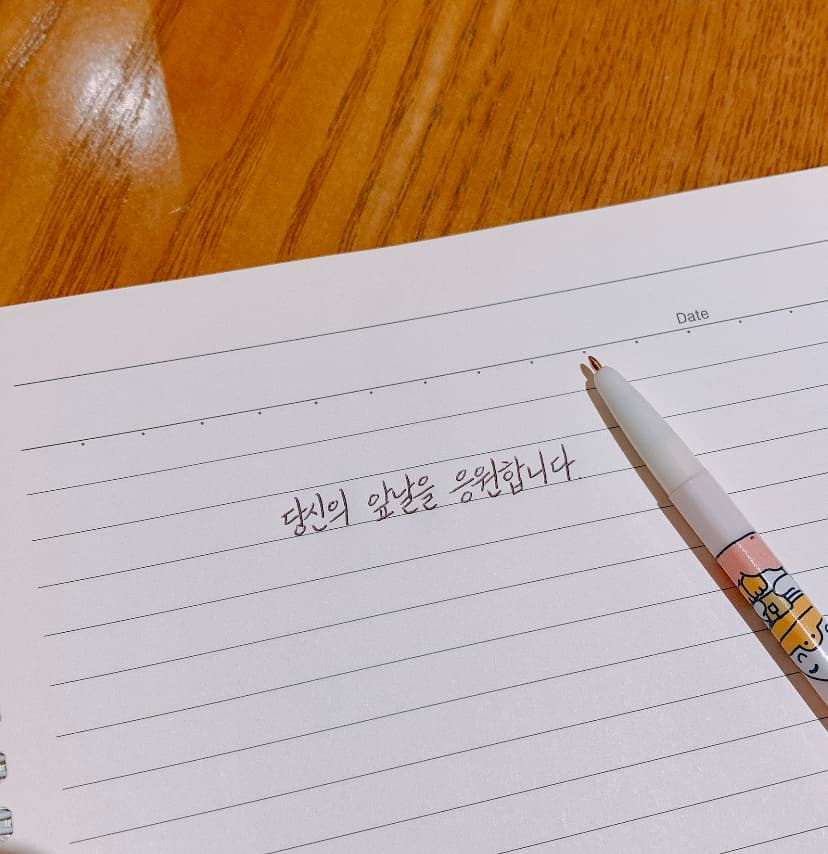 Date
당신의 앞날을 응원합니다.